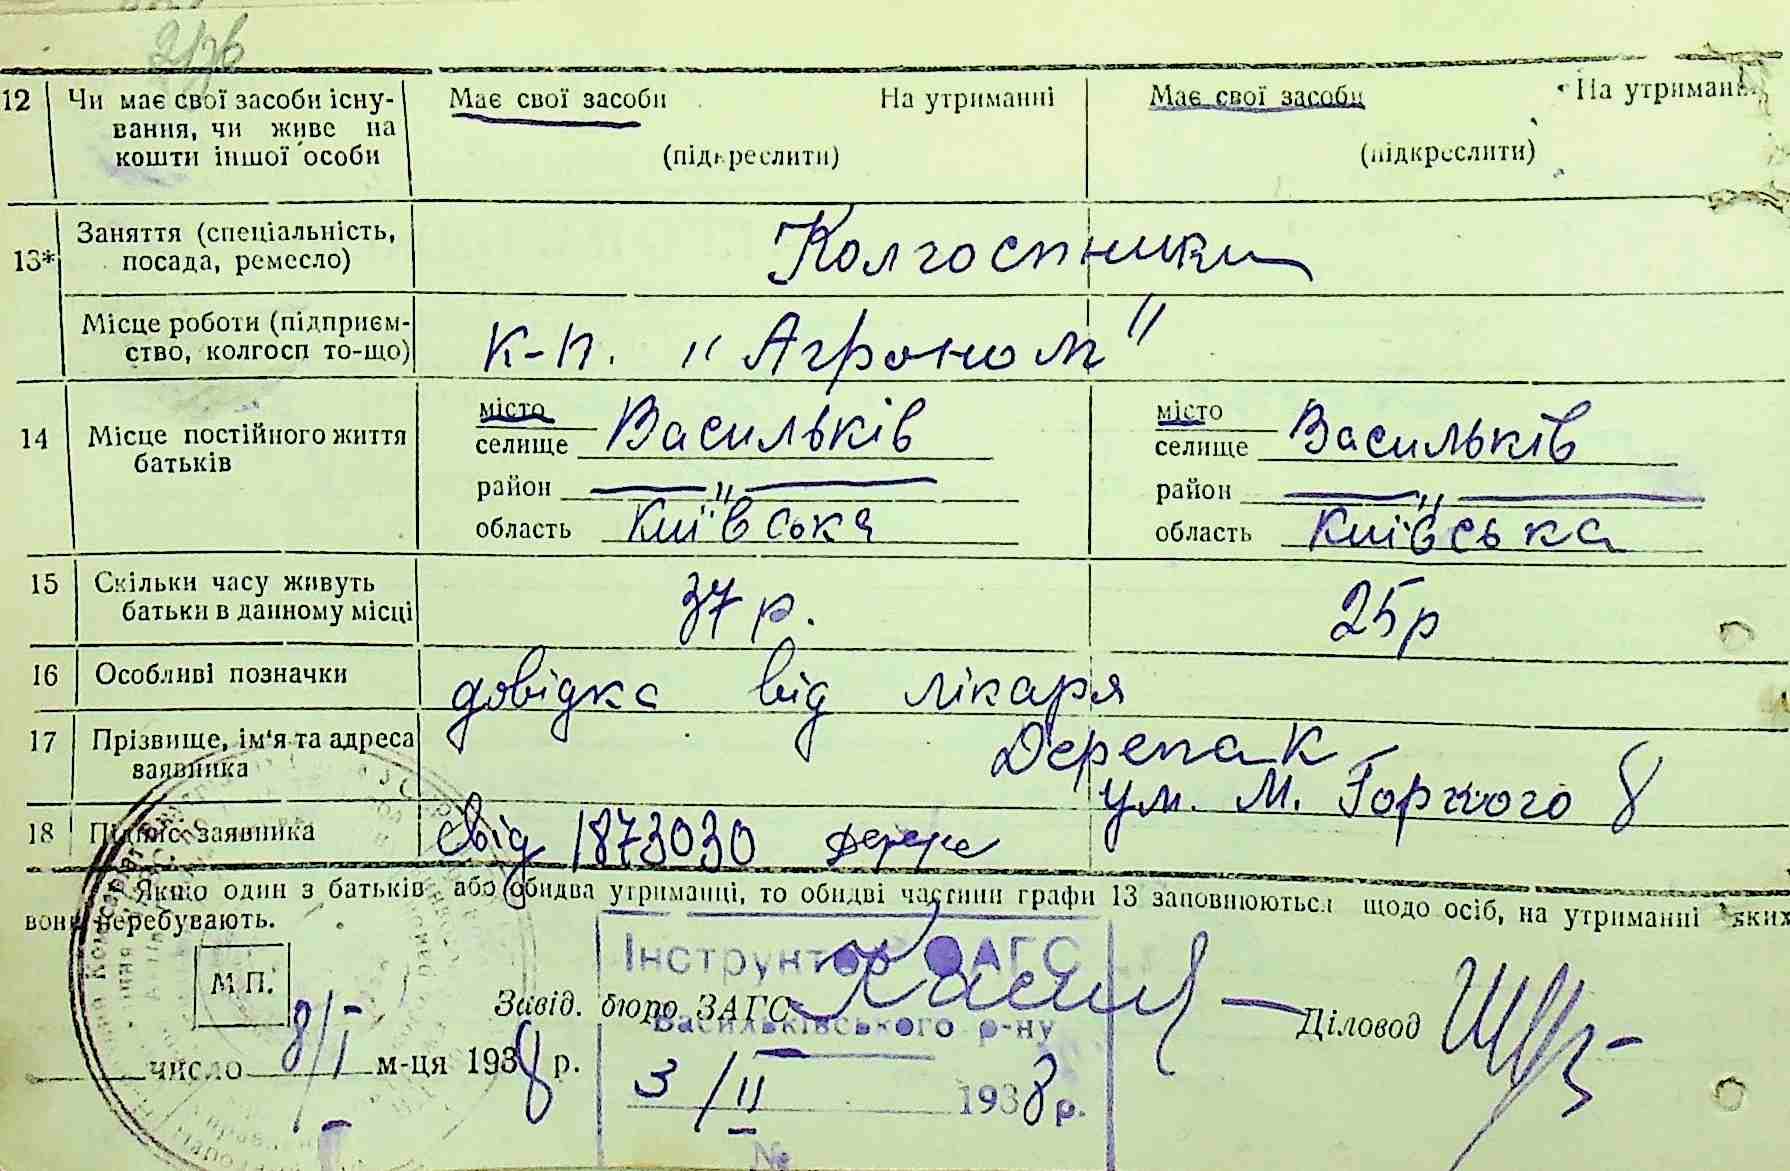 12 Чи має свої засоби існу- Має свої засоби На утриманні Має свої засоби На утриманні
вання, чи живе на
кошти іншої особи (підкреслити) (підкреслити)
13* Заняття (спеціальність, Колгоспники
посада, ремесло)
Місце роботи (підприєм- к-п. "Агроном"
ство, колгосп то-що)
14 Місце постійного життя місто Васильків місто Васильків
батьків селище селище
район — " — район — " —
область Київська область Київська
15 Скільки часу живуть 37 р. 25 р
батьки в данному місці
16 Особливі позначки довідка від лікаря
17 Прізвище, ім'я та адреса Дерепак
заявника ул. М. Горького 8
18 Підпис заявника свід 1873030
Якщо один з батьків або обидва утриманці, то обидві частини графи 13 заповнюються щодо осіб, на утриманні яких
вони перебувають.
Інструктор ЗАГС
М П. Завід. бюро ЗАГС Діловод
Васильківського р-ну
число 8/I м-ця 1938 р.
3/II 1938 р.
№